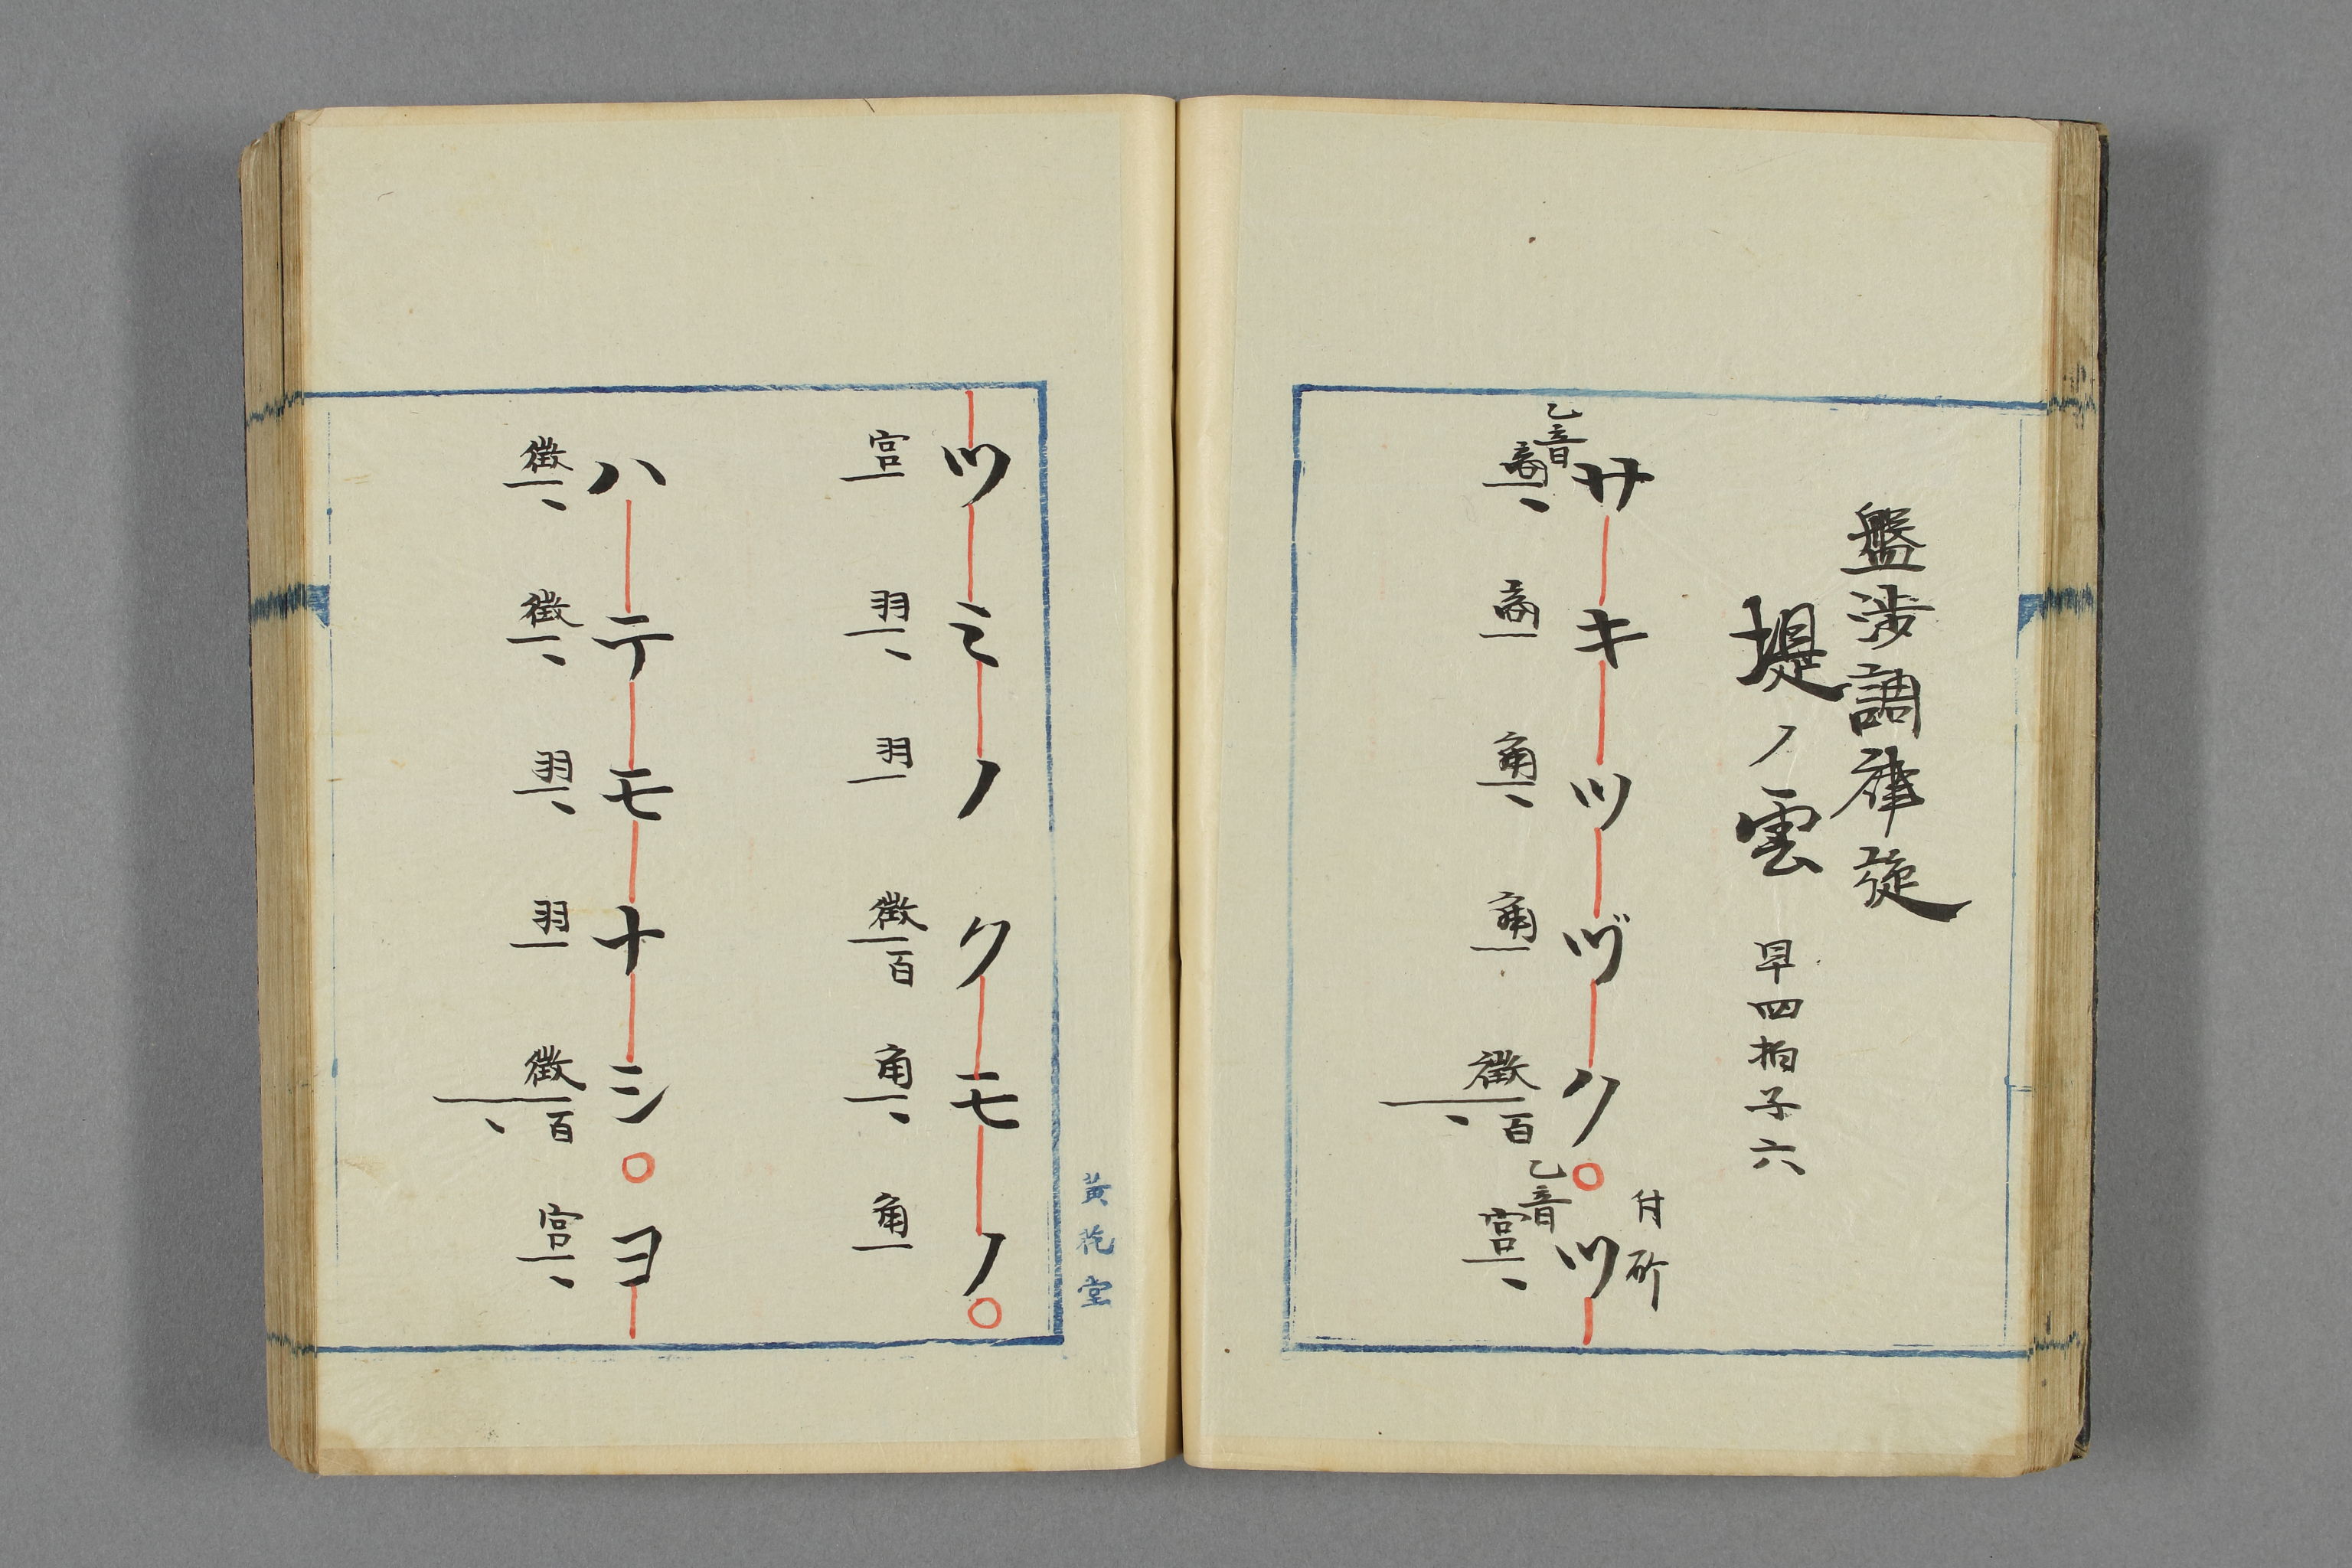 盤渉調律旋
堤ノ雲 早四拍子六
付所
サキツヅク○ツ
乙音 商 商 角 角 徴百 乙音 宮
ツミノクモノ○
宮 羽 羽 徴百 角 角
ハテモナシ○ヨ
徴 徴 羽 羽 徴百 宮